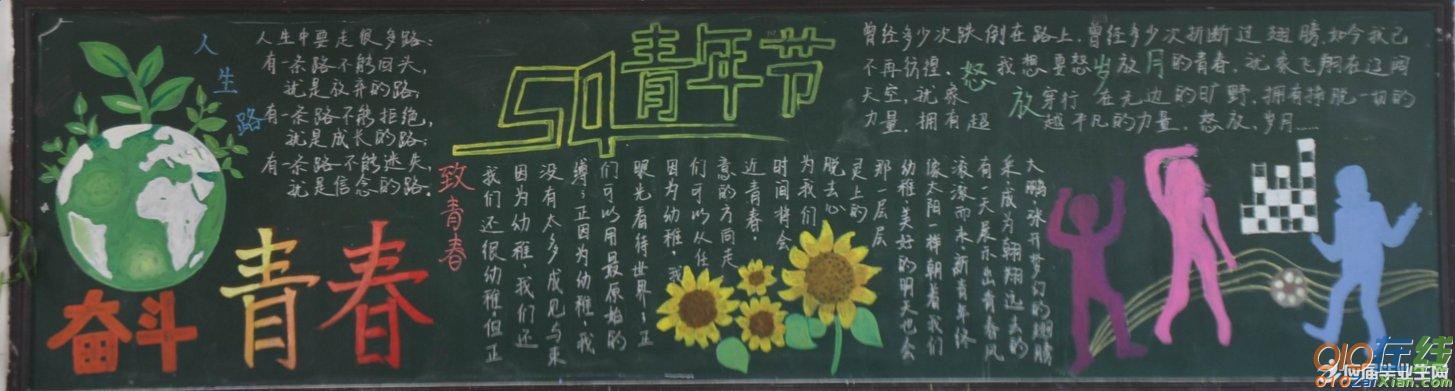 人生路
人生中要走很多路:
有一条路不能回头,
就是放弃的路;
有一条路不能拒绝,
就是成长的路;
有一条路不能迷失,
就是信念的路。
奋斗
青春
54青年节
致青春
我们还很幼稚,但正
因为幼稚,我们还
没有太多成见与束
缚;正因为幼稚,我
们可以用最原始的
眼光看待世界;正
因为幼稚,我
们可以从任
意的方向走
近青春,
时间将会
为我们
脱去心
灵上的
那一层层
幼稚,美好的明天也会
像太阳一样朝着我们
滚滚而来,新青年终
有一天展示出青春风
采,成为翱翔远去的
大鹏,张开梦幻的翅膀
曾经多少次跌倒在路上,曾经多少次折断过翅膀,如今我已
不再彷徨,我想要怒放的青春,就象飞翔在辽阔
天空,就象穿行在无边的旷野,拥有挣脱一切的
力量,拥有超越平凡的力量,怒放,岁月……
怒放岁月
应届毕业生网